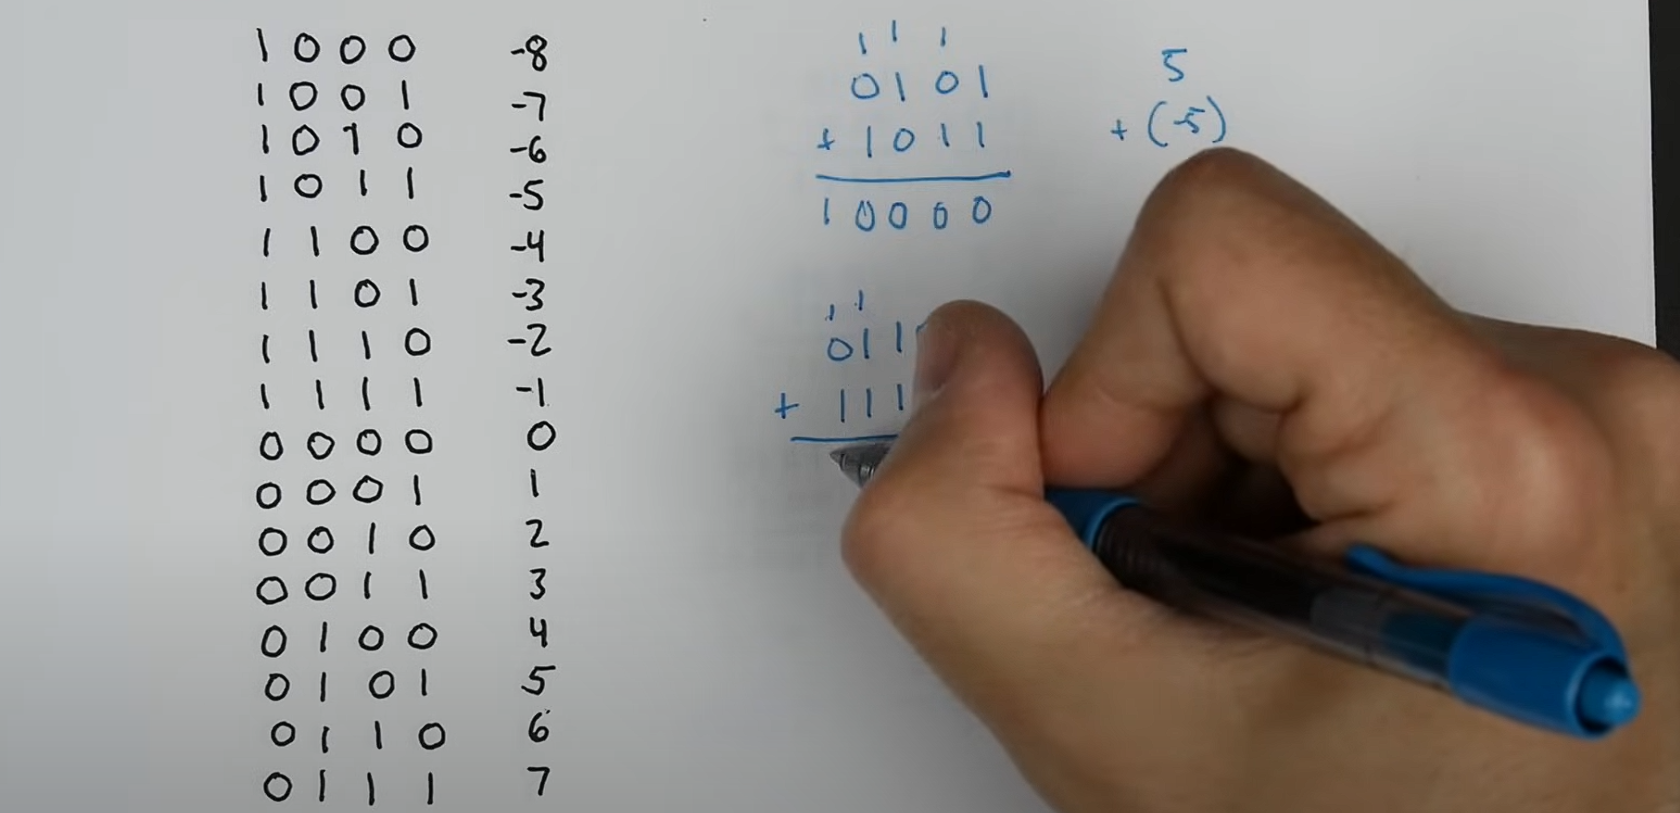 1 0 0 0 -8
1 0 0 1 -7
1 0 1 0 -6
1 0 1 1 -5
1 1 0 0 -4
1 1 0 1 -3
1 1 1 0 -2
1 1 1 1 -1
0 0 0 0 0
0 0 0 1 1
0 0 1 0 2
0 0 1 1 3
0 1 0 0 4
0 1 0 1 5
0 1 1 0 6
0 1 1 1 7
1 1 1
0101
+ 1011
10000
5
+ (-5)
1 1
011
+ 111